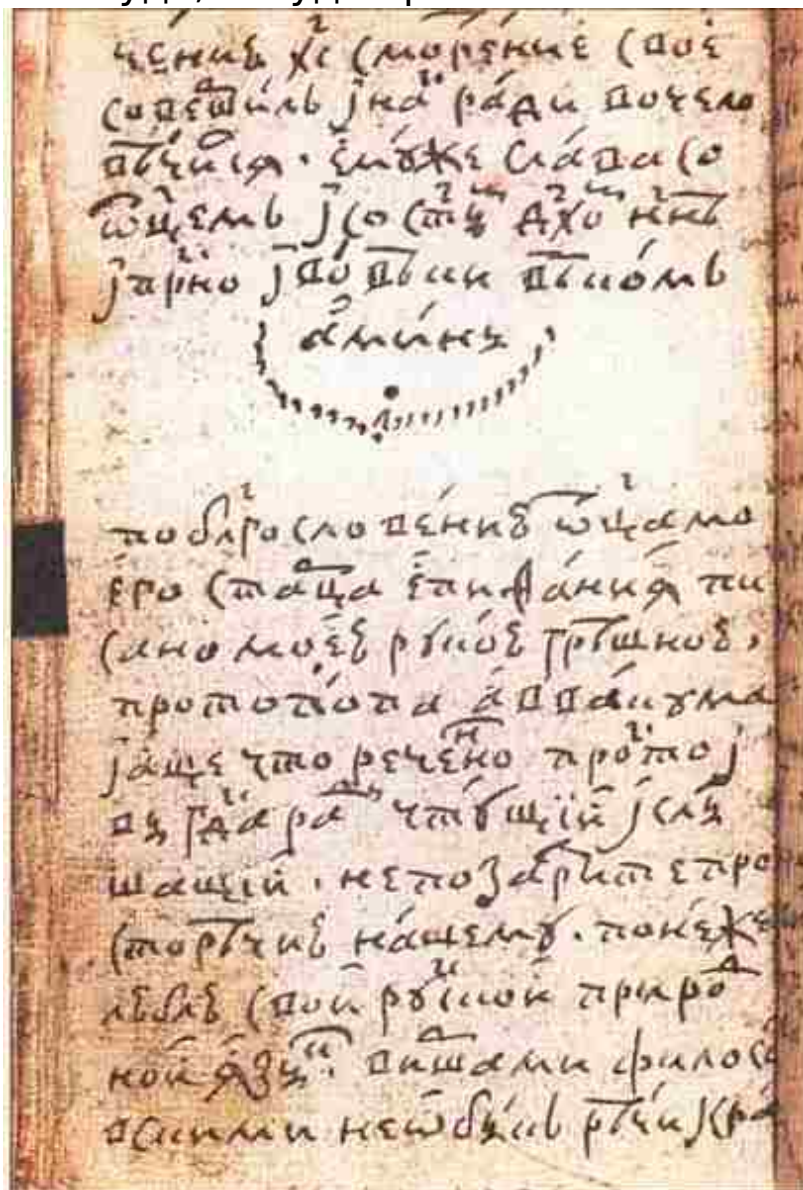 че́ниѣ хс҃ (мотре́ние (воѐ
(оверши́лъ ꙇ на́с ра́ди вочело
вѣ́чи́сѧ. ему́же сла́ва (о
ѿце́мъ ꙇ (о (ты́м дх҃о́м ннѣ
ꙇ при́сно ꙇ во́ вѣки вѣко́мъ
а́ми́нь
по бл҃гослове́нию ѿца́ мо
его̀ (та́рца епифа́ниѧ пи
(ано мое́ю руко́ю грѣшною,
протопо́па аввакума
ꙇ а́ще что рече́но про́сто ꙇ
вы гд҃а ра́ди чту́щїи ꙇ (лы
шащїи. не позазри́те про
(торѣ́чию на́шему. поне́же
люблю̀ (вой ру́ской приро́д
ной ѧзы́к. виршами фило(о́
вскими не ѡбы́къ рѣ́чи кра́